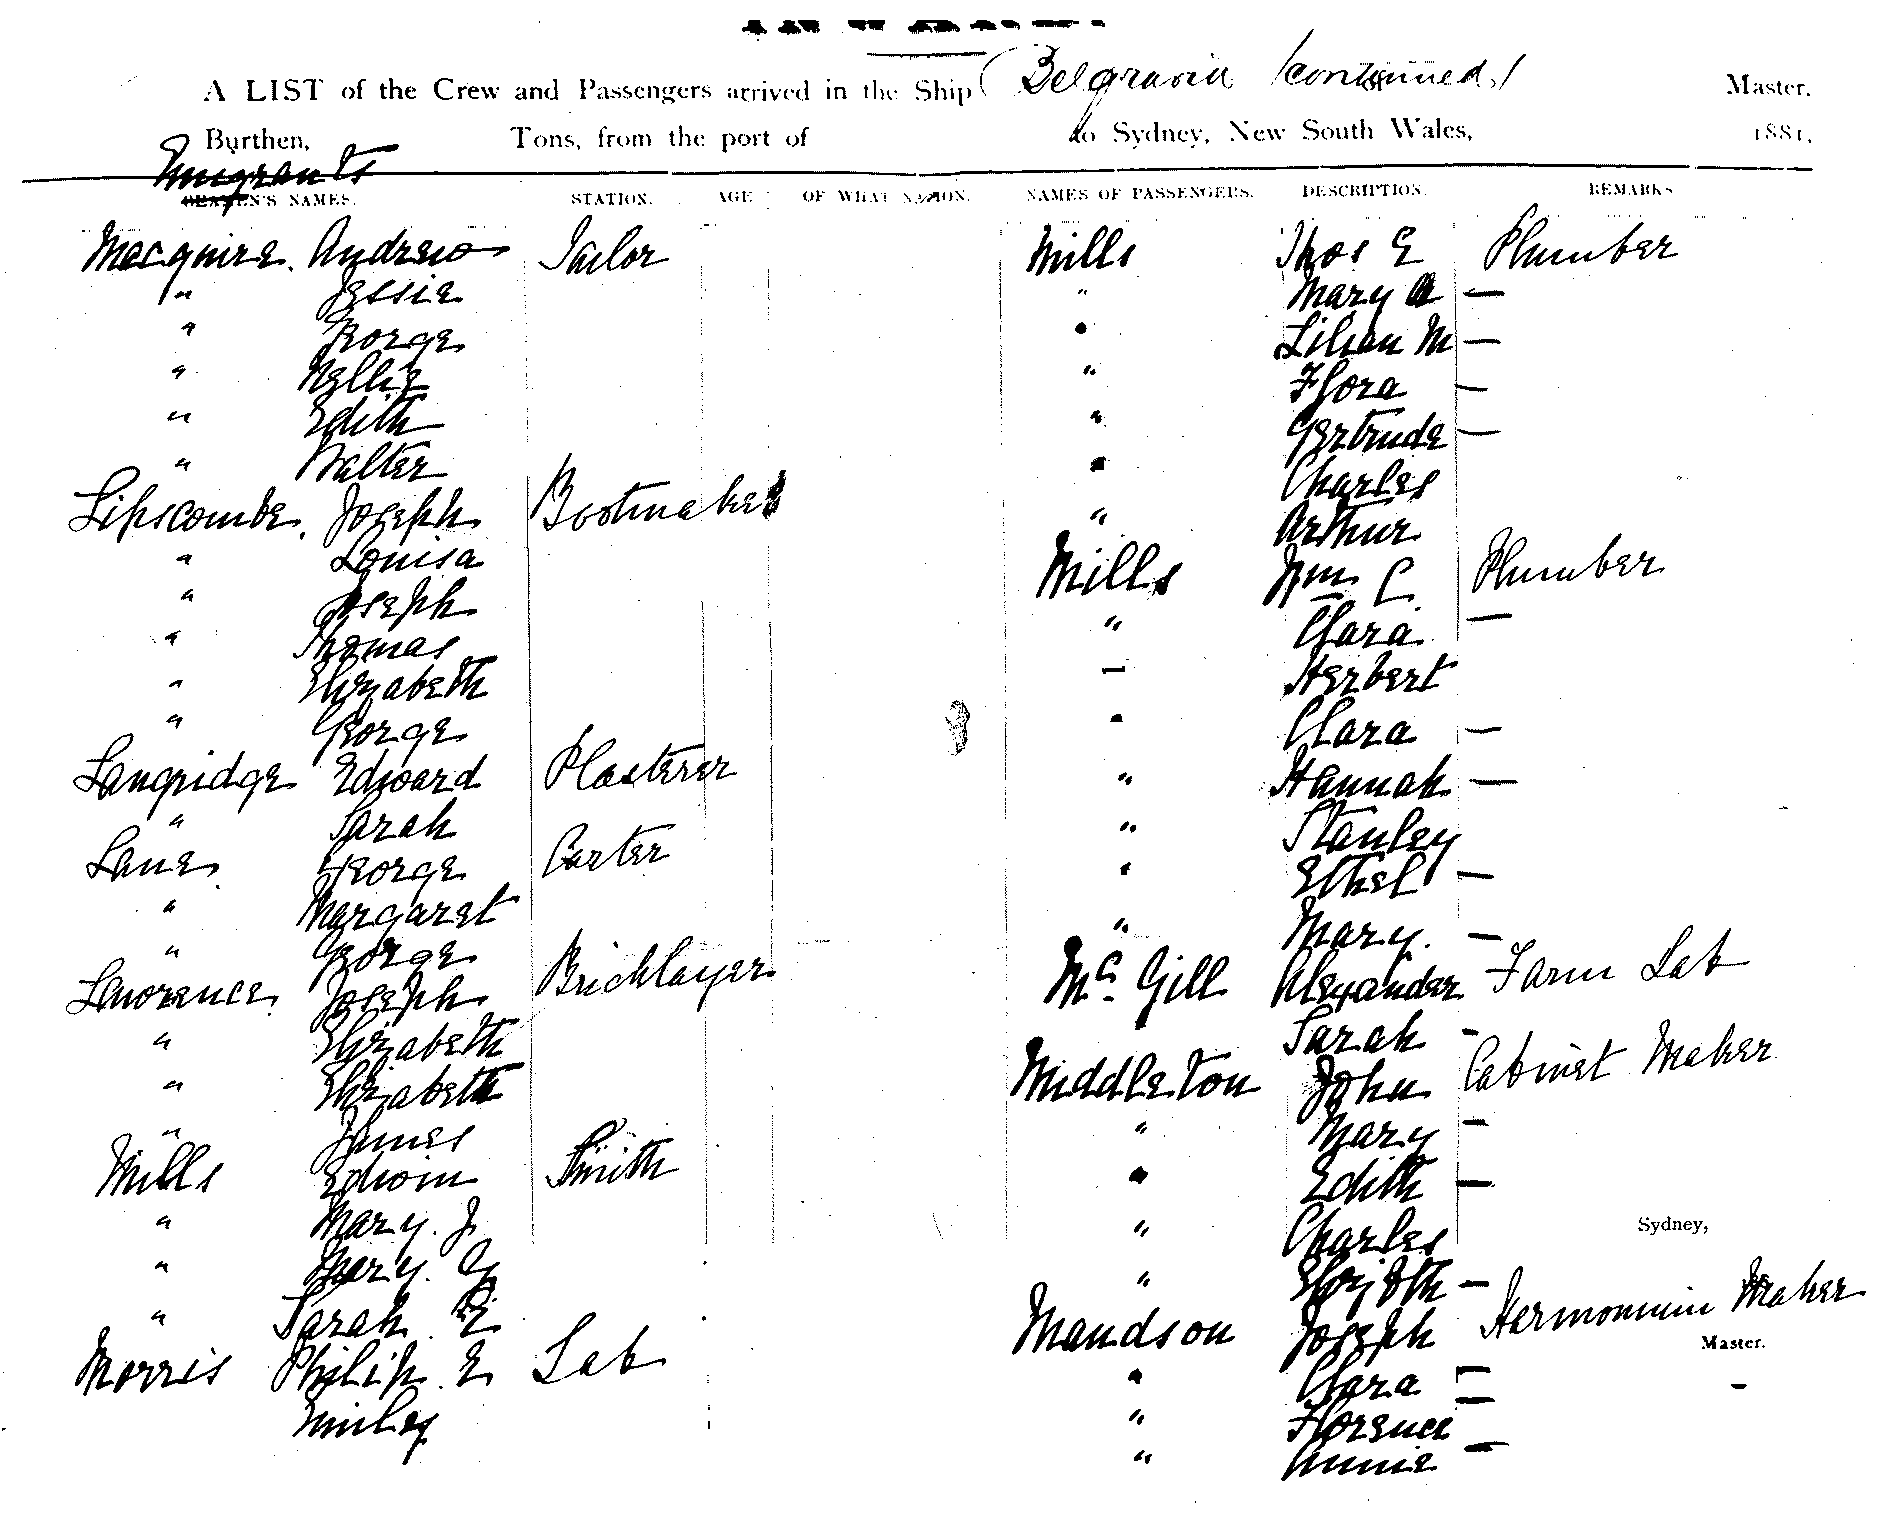 A LIST of the Crew and Passengers arrived in the Ship (Belgravia (continued) Master.
Burthen, Tons, from the port of to Sydney, New South Wales, 1881.
Emigrants
SEAMEN'S NAMES. STATION. AGE OF WHAT NATION. NAMES OF PASSENGERS. DESCRIPTION. REMARKS
Macquire. Andrew Tailor
" Jessie
" George
" Nellie
" Edith
" Walter
Lipscombe. Joseph Bootmaker
" Louisa
" Joseph
" Thomas
" Elizabeth
" George
Langridge Edward Plasterer
" Sarah
Lane George Carter
" Margaret
" George
Lawrence Joseph Bricklayer
" Elizabeth
" Elizabeth
" James
Mills Edwin Smith
" Mary. J.
" Mary.
" Sarah. E
Morris Philip. E Lab
Emily
Mills Thos E Plumber
" Mary A —
" Lilian M —
" Flora —
" Gertrude —
" Charles
" Arthur
Mills Wm C Plumber
" Clara —
— Herbert
" Clara —
" Hannah —
" Stanley
" Ethel —
" Mary. —
Mc. Gill Alexander Farm Lab
Sarah -
Middleton John Cabinet Maker
" Mary -
" Edith —
" Charles
" Elizbth —
Maudson Joseph Harmonium Maker
" Clara —
" Florence —
" Annie —
Sydney,
Master.